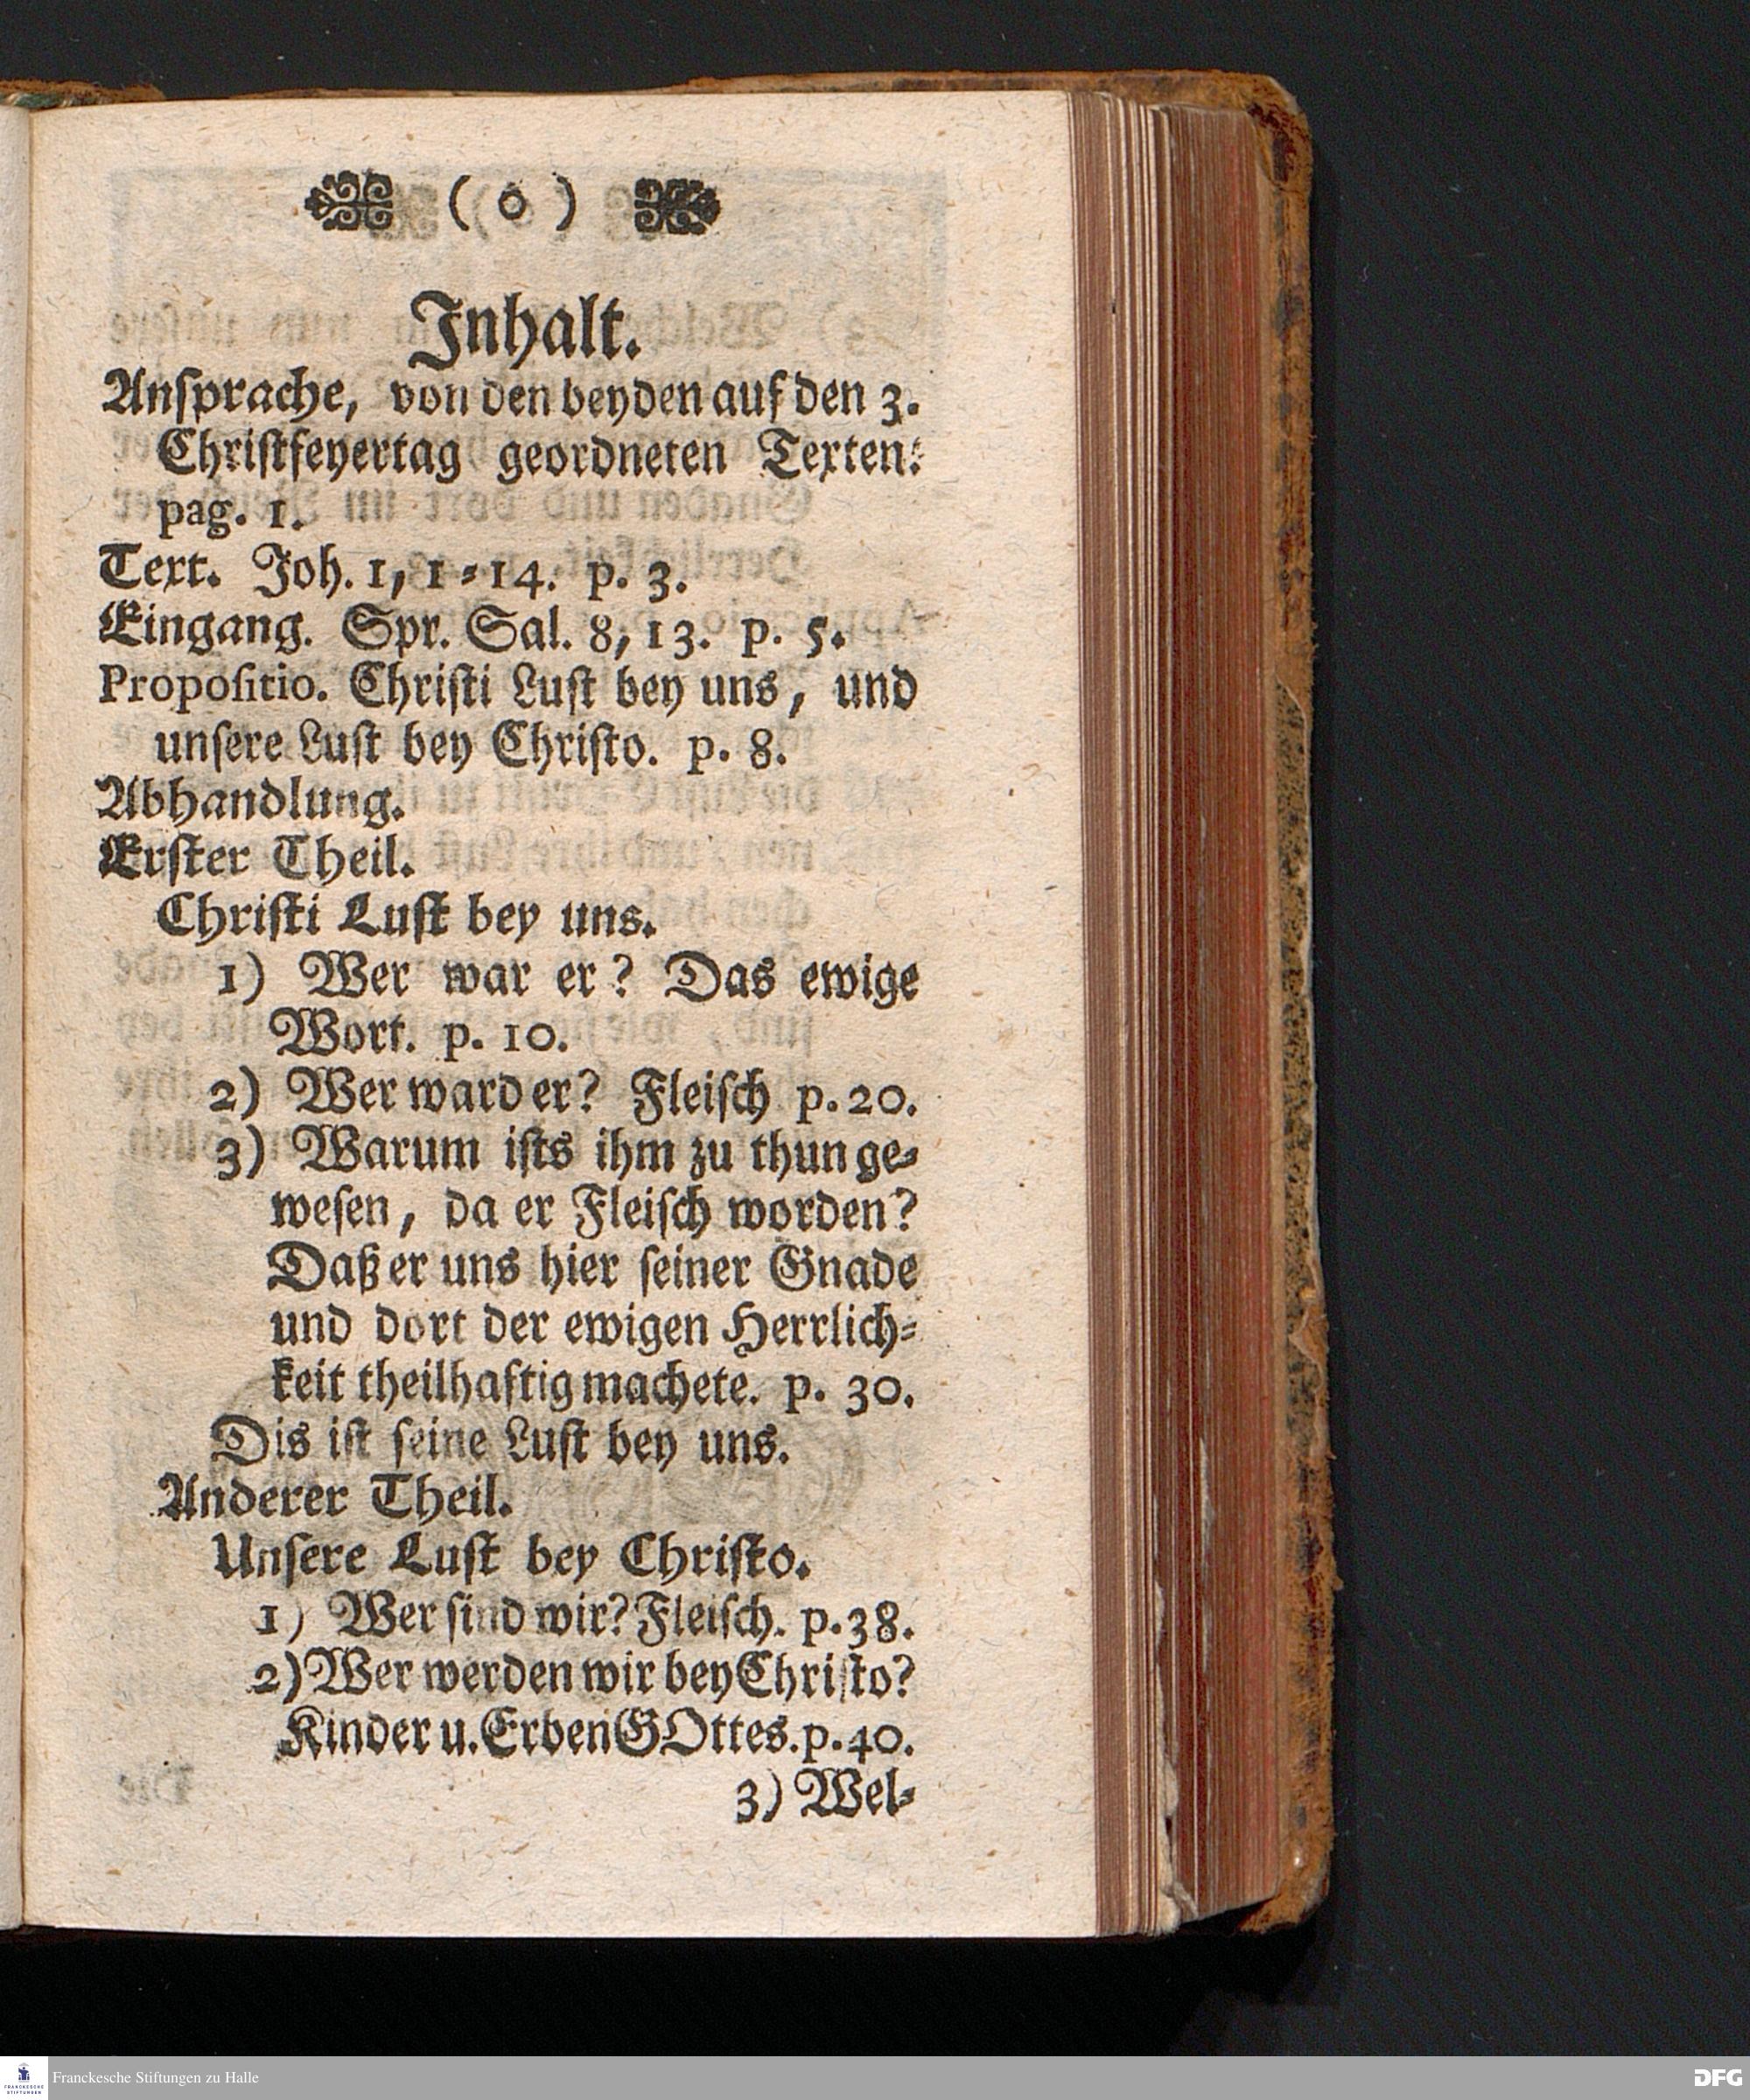 ( o )
Inhalt.
Anſprache, von den beyden auf den 3.
Chriſtfeyertag geordneten Texten.
pag. 1.
Text. Joh. 1, 1-14. p. 3.
Eingang. Spr. Sal. 8, 13. p. 5.
Propoſitio. Chriſti Luſt bey uns, und
unſere Luſt bey Chriſto. p. 8.
Abhandlung.
Erſter Theil.
Chriſti Luſt bey uns.
1) Wer war er? Das ewige
Wort. p. 10.
2) Wer ward er? Fleiſch p. 20.
3) Warum iſts ihm zu thun ge-
weſen, da er Fleiſch worden?
Daß er uns hier ſeiner Gnade
und dort der ewigen Herrlich-
keit theilhaftig machete. p. 30.
Dis iſt ſeine Luſt bey uns.
Anderer Theil.
Unſere Luſt bey Chriſto.
1) Wer ſind wir? Fleiſch. p. 38.
2) Wer werden wir bey Chriſto?
Kinder u. Erben GOttes. p. 40.
3) Wel-
FRANCKESCHE STIFTUNGEN
Franckesche Stiftungen zu Halle
DFG